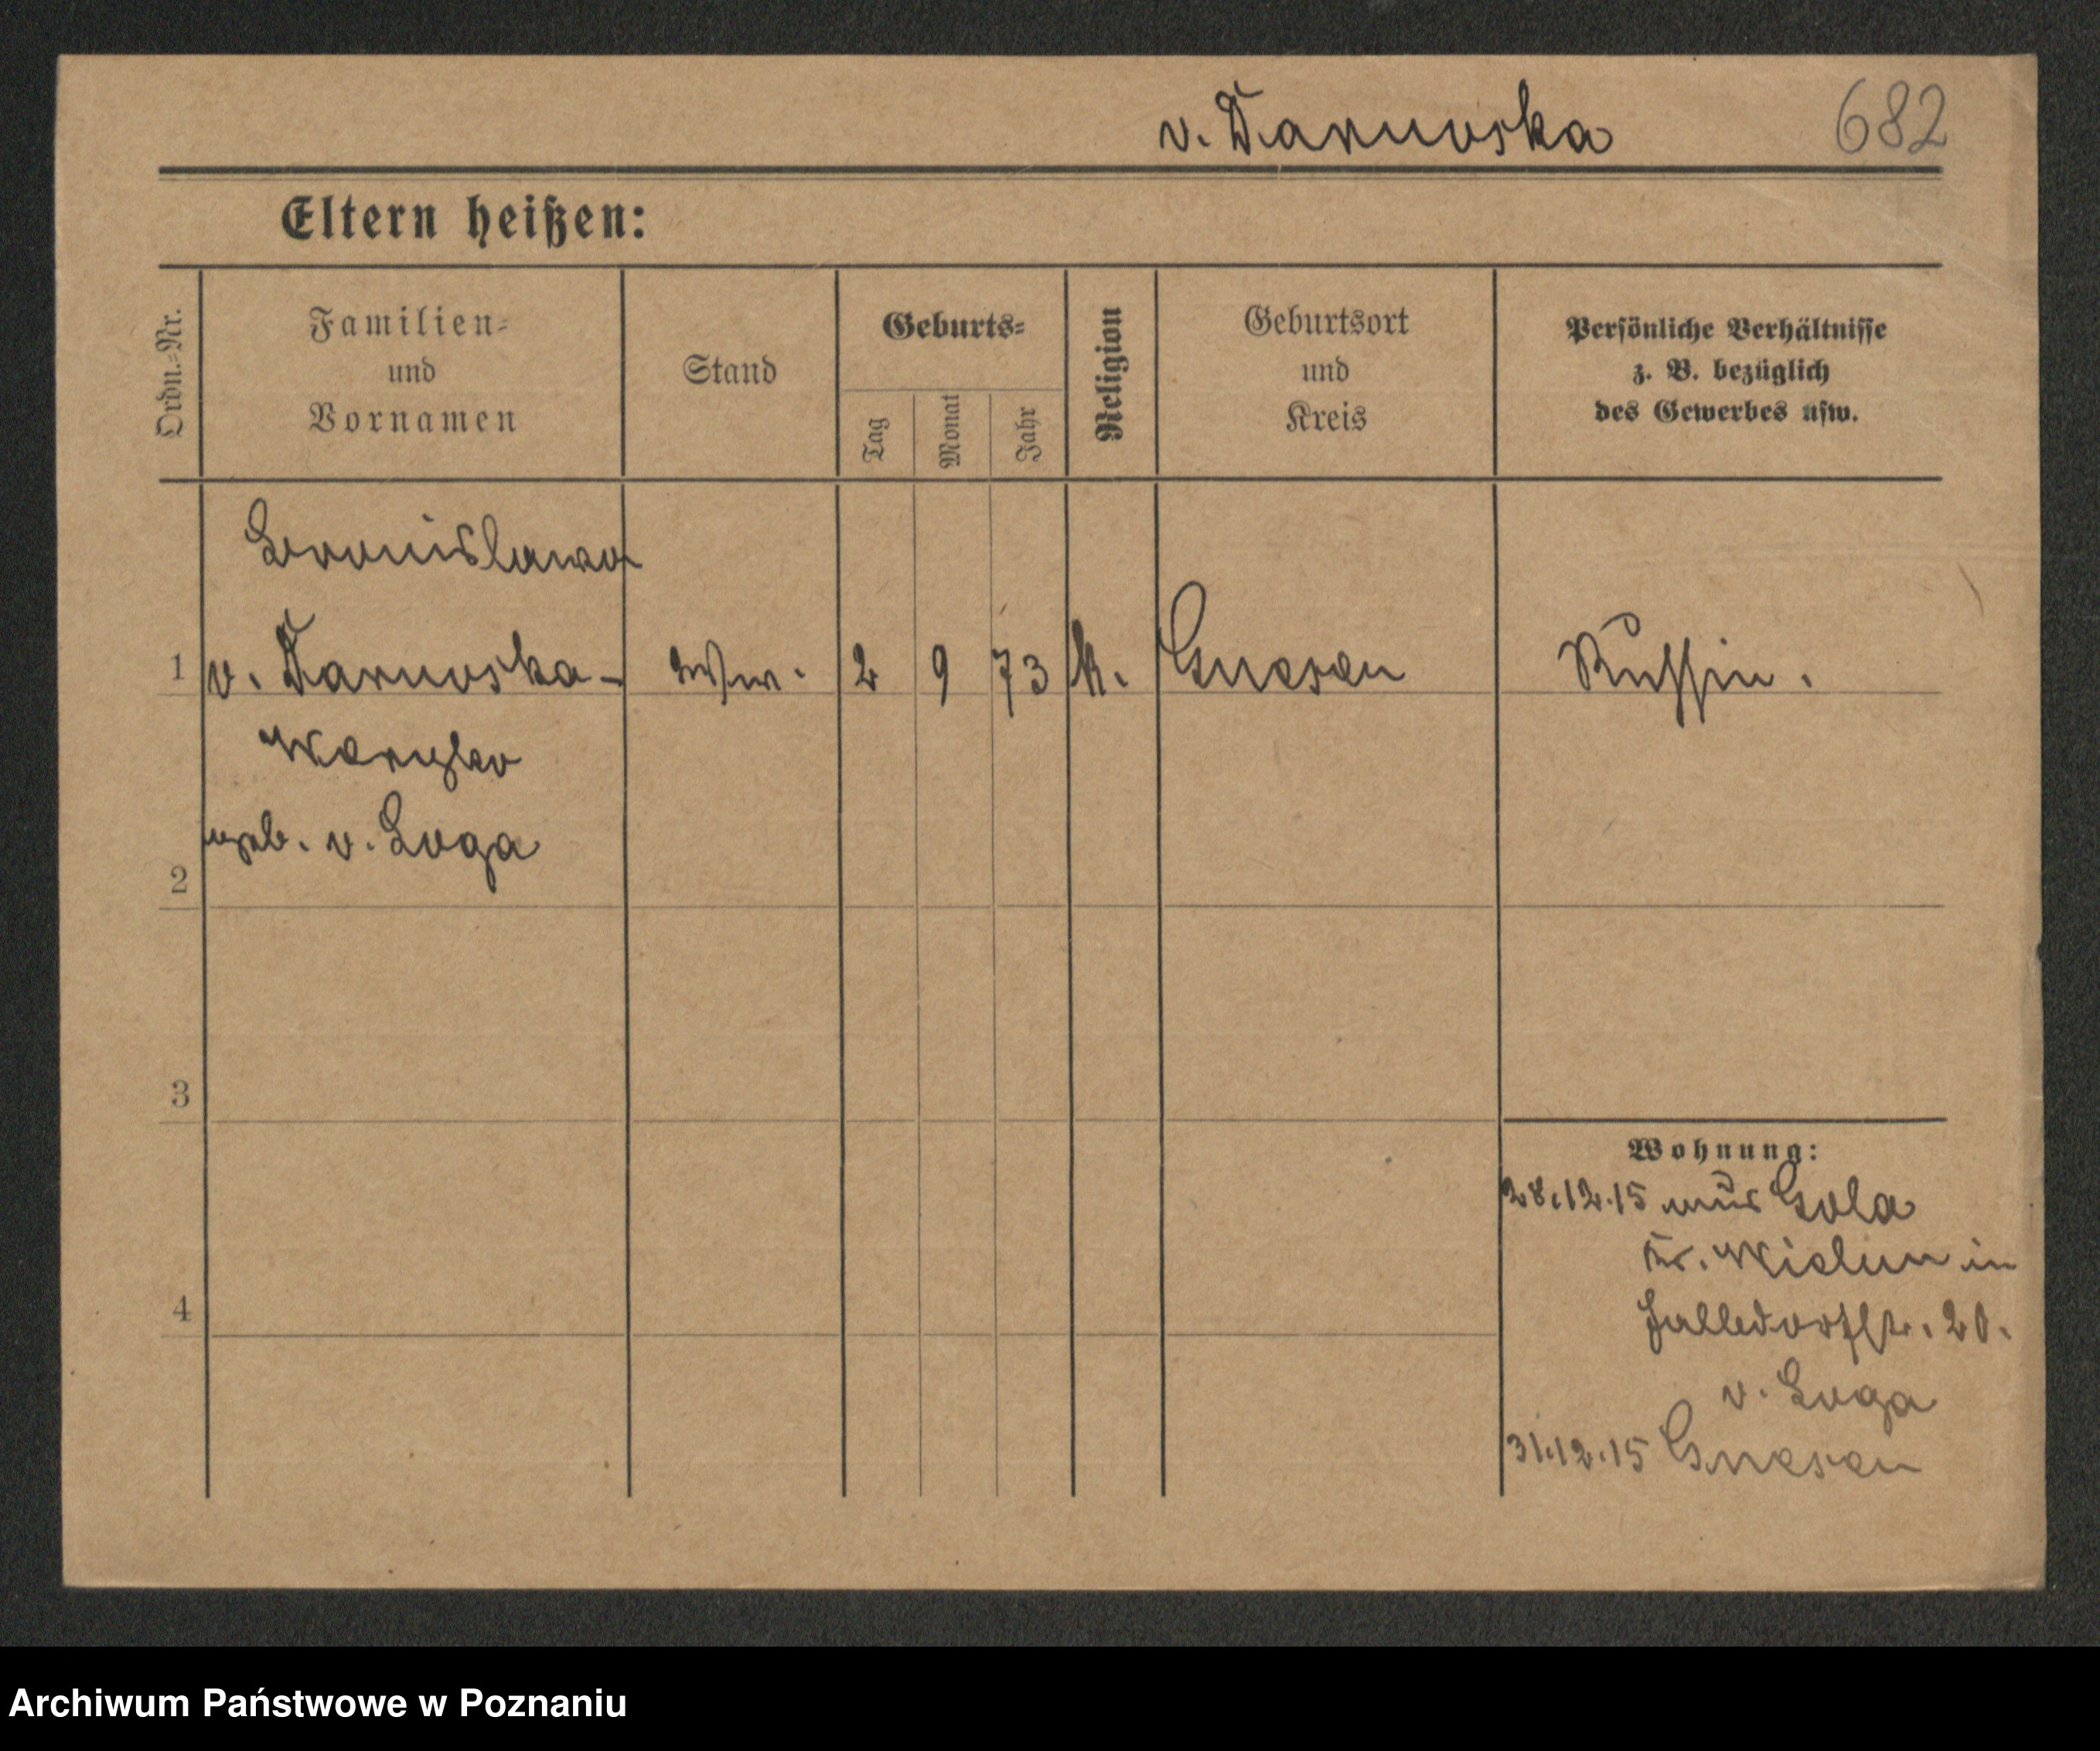 v. Tarnowska 682
Eltern heißen:
Ordn.-Nr.
Familien-
und
Vornamen
Stand
Geburts-
Tag
Monat
Jahr
Religion
Geburtsort
und
Kreis
Persönliche Verhältnisse
z. B. bezüglich
des Gewerbes usw.
Bronislawa
1 v. Tarnowska- Ww. 2 9 73 k. Gnesen Russin.
geb. v. Loga
2
3
4
Wohnung:
28.12.15 aus Gola
Kr. Wielun in
20.
v. Loga
31.12.15 Gnesen
Archiwum Państwowe w Poznaniu